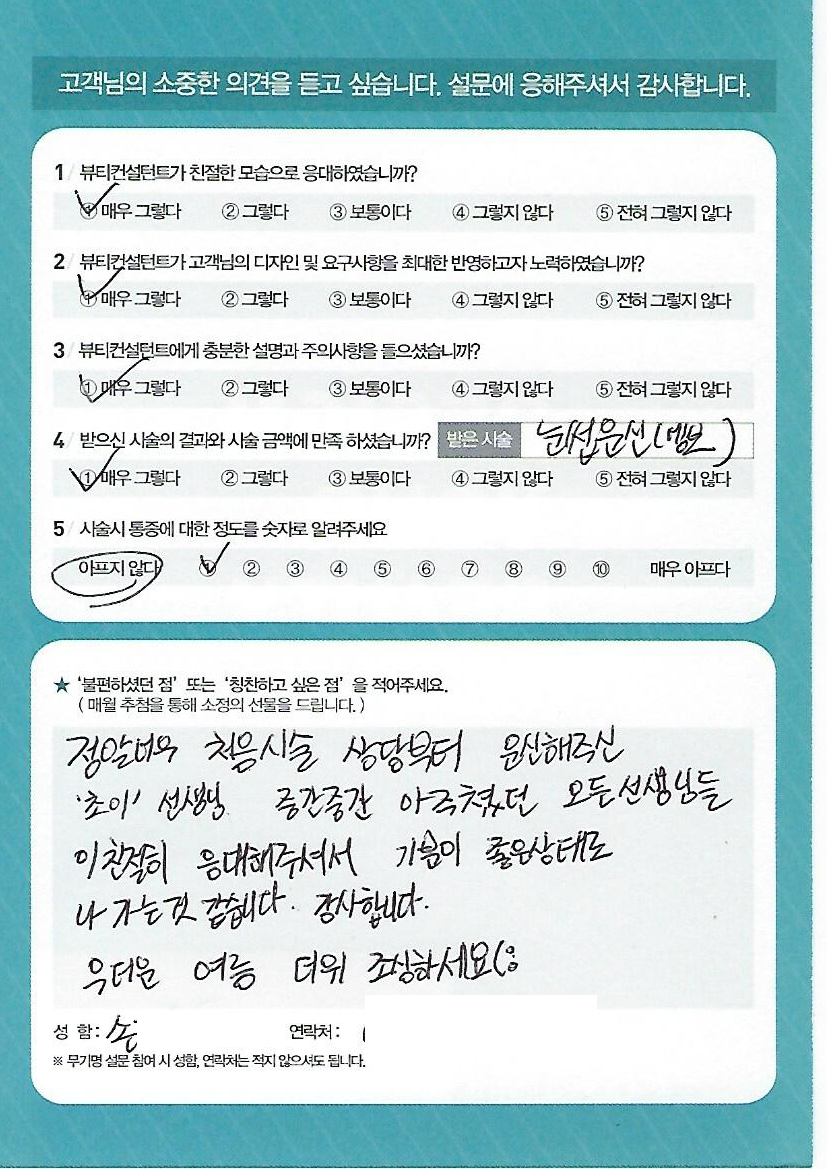 고객님의 소중한 의견을 듣고 싶습니다. 설문에 응해주셔서 감사합니다.
1 / 뷰티컨설턴트가 친절한 모습으로 응대하였습니까?
① 매우 그렇다 ② 그렇다 ③ 보통이다 ④ 그렇지 않다 ⑤ 전혀 그렇지 않다
2 / 뷰티컨설턴트가 고객님의 디자인 및 요구사항을 최대한 반영하고자 노력하였습니까?
① 매우 그렇다 ② 그렇다 ③ 보통이다 ④ 그렇지 않다 ⑤ 전혀 그렇지 않다
3 / 뷰티컨설턴트에게 충분한 설명과 주의사항을 들으셨습니까?
① 매우 그렇다 ② 그렇다 ③ 보통이다 ④ 그렇지 않다 ⑤ 전혀 그렇지 않다
4 / 받으신 시술의 결과와 시술 금액에 만족 하셨습니까? 받은 시술 눈썹문신(엠보)
① 매우 그렇다 ② 그렇다 ③ 보통이다 ④ 그렇지 않다 ⑤ 전혀 그렇지 않다
5 / 시술시 통증에 대한 정도를 숫자로 알려주세요
아프지 않다 ① ② ③ ④ ⑤ ⑥ ⑦ ⑧ ⑨ ⑩ 매우 아프다
★ '불편하셨던 점' 또는 '칭찬하고 싶은 점' 을 적어주세요.
( 매월 추첨을 통해 소정의 선물을 드립니다. )
처음시술 상담부터 문신해주신
'초이' 선생님 중간중간 마주쳤던 모든선생님들
이친절히 응대해주셔서 기분이 좋은상태로
나가는것 같습니다. 감사합니다.
무더운 여름 더위 조심하세요(:
성 함 : 손
연락처 :
※ 무기명 설문 참여 시 성함, 연락처는 적지 않으셔도 됩니다.